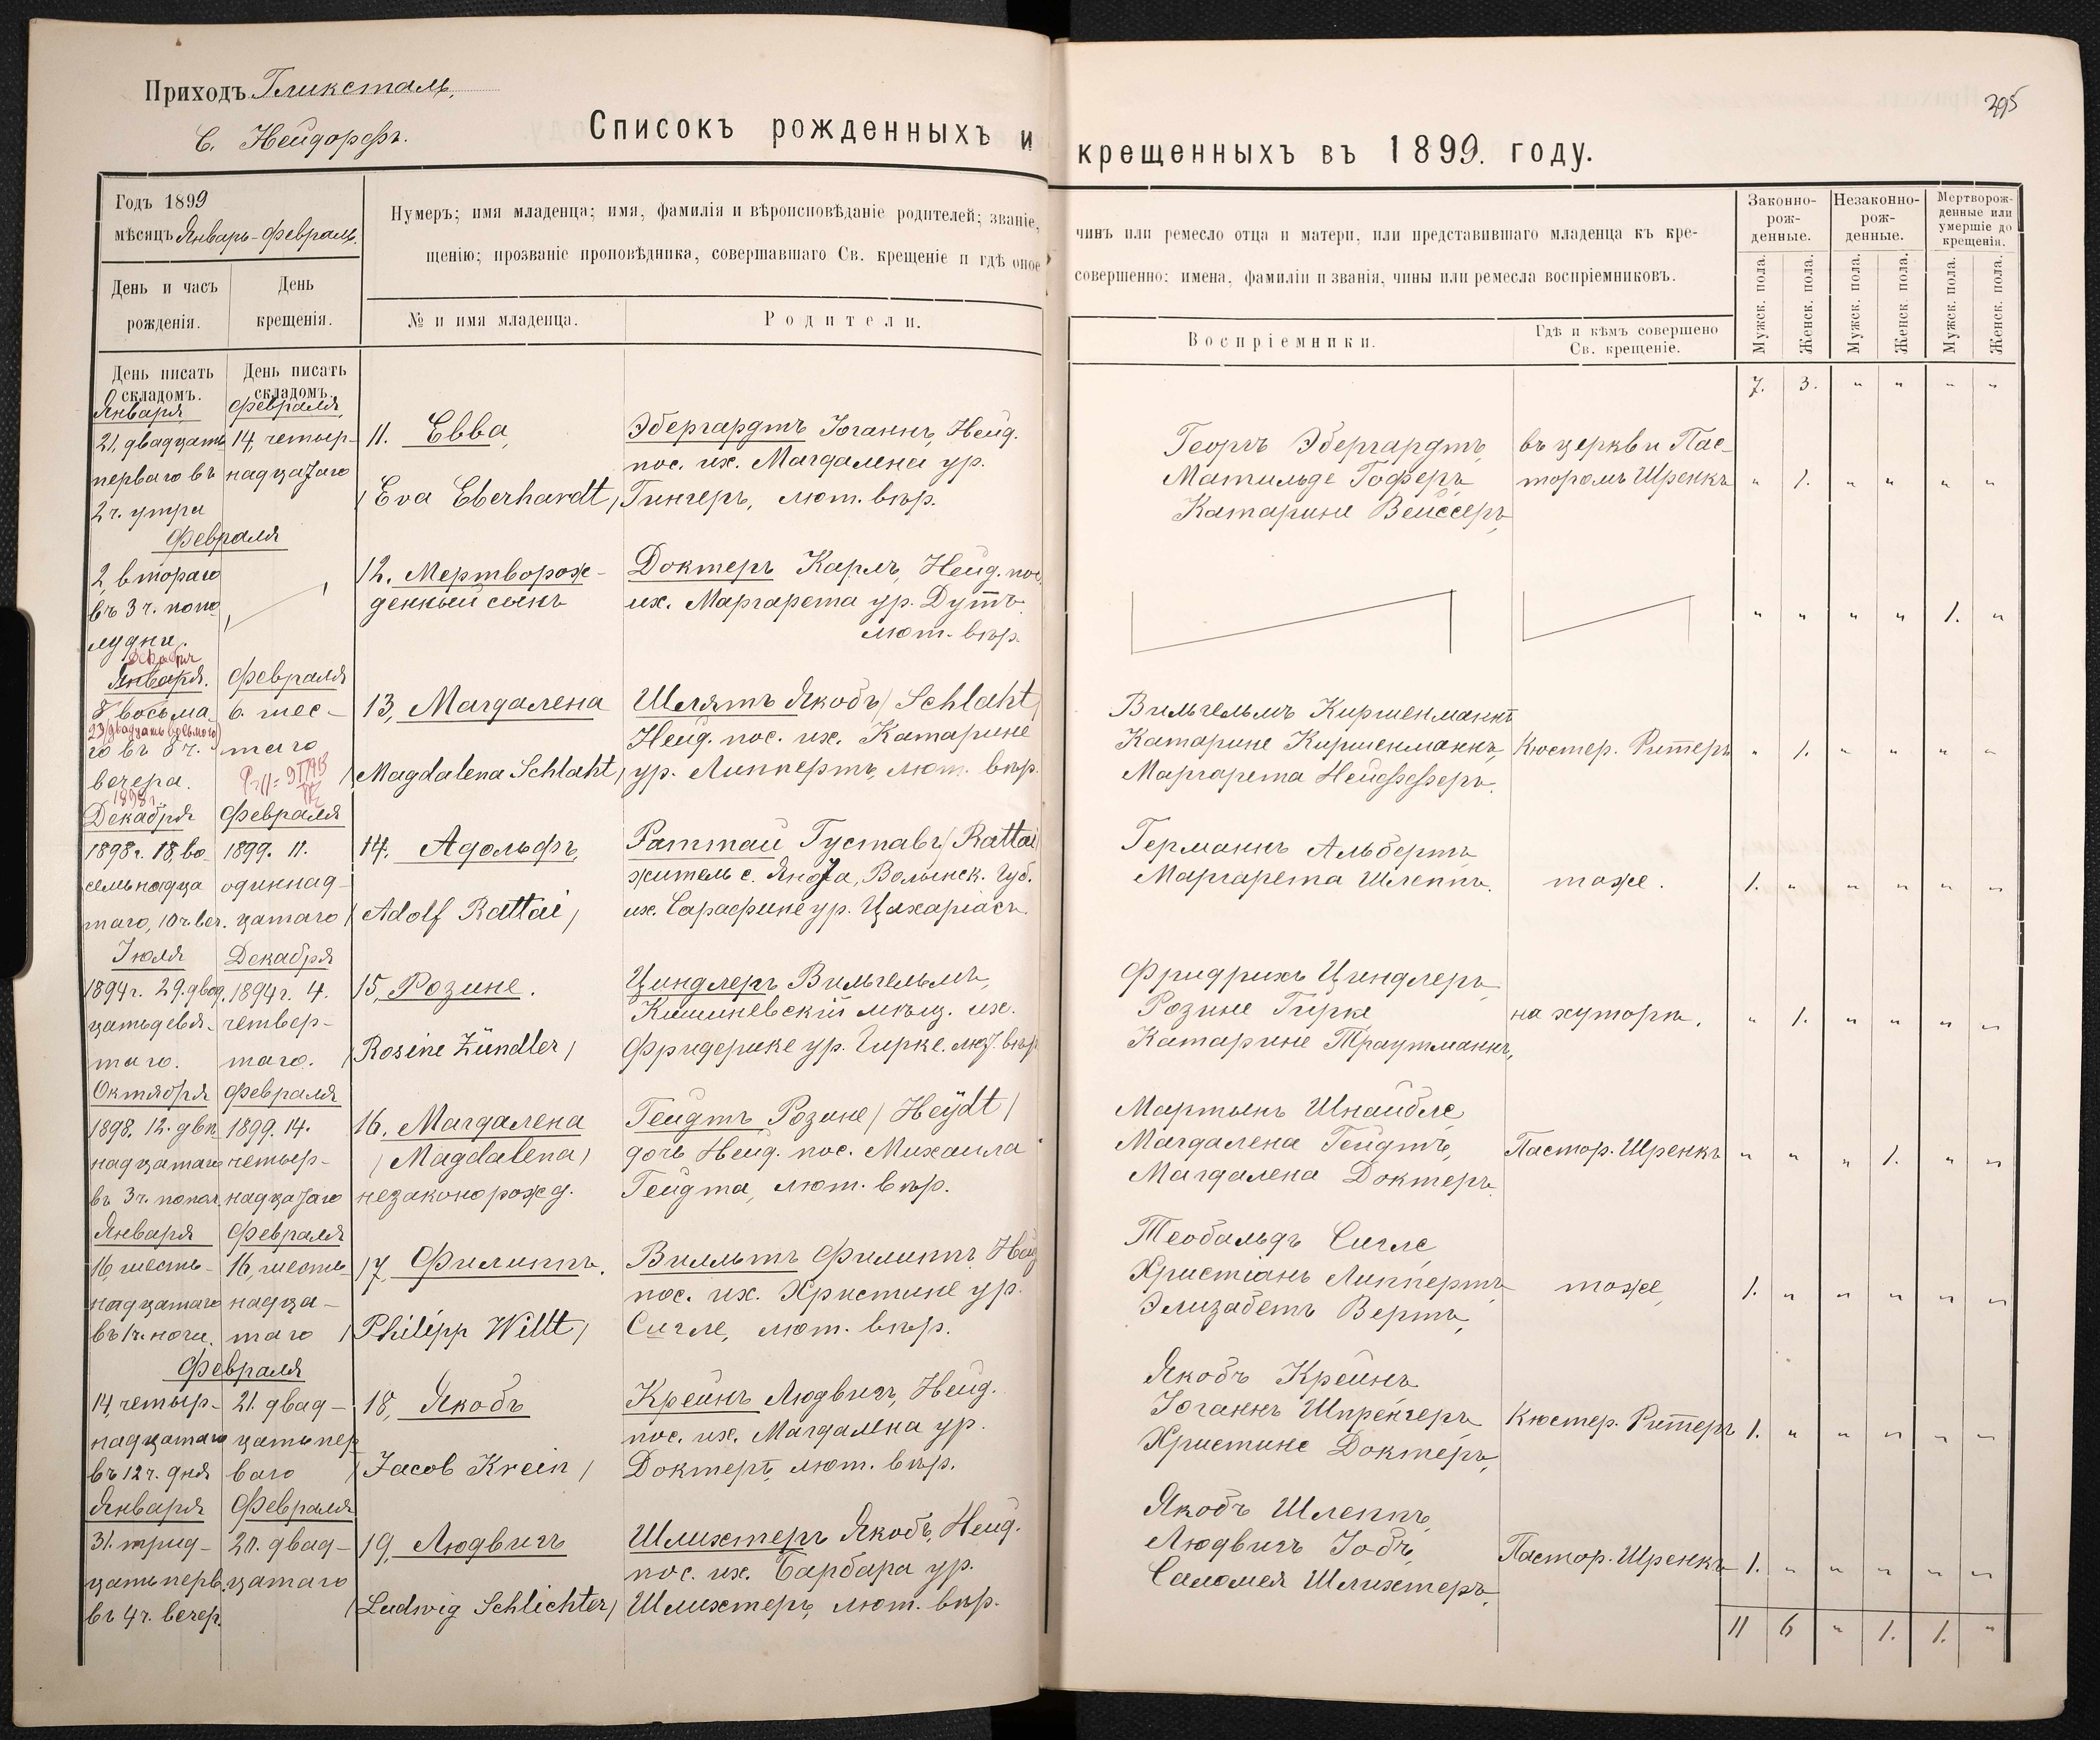 Приходъ Гликсталь,
С. Нейдорфъ.
295
Списокъ рожденныхъ и крещенныхъ въ 1899. году.
Годъ 1899
мѣсяцъ Январь-Февраль.
Нумеръ; имя младенца; имя, фамилія и вѣроисповѣданіе родителей; званіе,
чинъ или ремесло отца и матери, или представившаго младенца къ кре-
щенію; прозваніе проповѣдника, совершавшаго Св. крещеніе и гдѣ оное
совершенно: имена, фамиліи и званія, чины или ремесла воспріемниковъ.
День и часъ
рожденія.
День
крещенія.
№ и имя младенца.
Родители.
Воспріемники.
Гдѣ и кѣмъ совершено
Св. крещеніе.
Законно-
рож-
денные.
Незаконно-
рож-
денные.
Мертворож-
денные или
умершіе до
крещенія.
Мужск. пола.
Женск. пола.
Мужск. пола.
Женск. пола.
Мужск. пола.
Женск. пола.
День писать
складомъ.
День писать
складомъ.
7. 3. " " " "
Января
21, двадцать
перваго въ
2 ч. утра
Февраля
14, четыр-
надцатаго
11. Евва,
(Eva Eberhardt)
Эбергардтъ Іоганнъ, Нейд.
пос. их. Магдалена ур.
Гингеръ, лют. вѣр.
Георгъ Эбергардтъ,
Матильде Гоферъ,
Катарине Вейссеръ,
въ церкви Пас-
торомъ Шренкъ
" 1. " " " "
Февраля
2, втораго
въ 3 ч. попо
лудни.
12. Мертворож-
денный сынъ
Доктеръ Карлъ, Нейд. пос.
их. Маргарета ур. Дуттъ.
лют. вѣр.
" " " " 1. "
Декабря
Января.
8 восьма
23 (двадцать восьмого)
го въ 8 ч.
вечера.
1898 г.
Февраля
6. шес-
таго
13, Магдалена
(Magdalena Schlaht)
Шлятъ Якобъ (Schlaht)
Нейд. пос. их. Катарине
ур. Липпертъ, лют. вѣр.
Вильгельмъ Киршенманнъ
Катарине Киршенманнъ,
Маргарета Нейфферъ.
Кюстер. Риттеръ
" 1. " " " "
Декабря
1898 г. 18, во
семьнадца
таго, 10 ч. веч.
Февраля
1899. 11.
одиннад-
цатаго
14. Адольфъ,
(Adolf Rattai)
Раттай Густавъ (Rattai)
житель с. Якова, Волынск. Губ.
их. Сарафине ур. Цахаріасъ.
Германнъ Альбертъ
Маргарета Шлеппъ.
тоже.
1. " " " " "
Іюля
1894 г. 29. двад
цатьдевя-
таго.
Декабря
1894 г. 4.
четвер-
таго.
15, Розине.
(Rosine Zündler)
Циндлеръ Вильгельмъ,
Кишиневскій мѣщ. их.
Фридерике ур. Гирке. лют. вѣр
Фридрихъ Циндлеръ,
Розине Гирке
Катарине Траутманнъ,
на хуторѣ.
" 1. " " " "
Октября
1898. 12. двѣ
надцатаго
въ 3 ч. попол.
Февраля
1899. 14.
четыр-
надцатаго
16. Магдалена
(Magdalena)
незаконорожд.
Гейдтъ Розине (Heÿdt)
дочь Нейд. пос. Михаила
Гейдта, лют. вѣр.
Мартынъ Шнайбле,
Магдалена Гейдтъ,
Магдалена Доктеръ.
Пастор. Шренкъ
" " " 1. " "
Января
16, шесть-
надцатаго
въ 1 ч. ночи.
Февраля
16, шесть-
надца-
таго
17, Филиппъ.
(Philipp Willt)
Вилльтъ Филиппъ, Нейд
пос. их. Христине ур.
Сигле, лют. вѣр.
Теобальдъ Сигле,
Христіанъ Липпертъ
Элизабетъ Вертъ,
тоже,
1. " " " " "
Февраля
14, четыр-
надцатаго
въ 12 ч. дня
21. двад-
цать пер
ваго
18, Якобъ
(Jacob Krein)
Крейнъ Людвигъ, Нейд.
пос. их. Магдалена ур.
Доктеръ, лют. вѣр.
Якобъ Крейнъ
Іоганнъ Шпренгеръ
Христине Доктеръ,
Кюстер. Риттеръ
1. " " " " "
Января
31. трид-
цать перв.
въ 4 ч. вечер.
Февраля
20. двад-
цатаго
19, Людвигъ
(Ludwig Schlichter)
Шлихтеръ Якобъ, Нейд.
пос. их. Барбара ур.
Шлихтеръ, лют. вѣр.
Якобъ Шлеппъ,
Людвигъ Іобъ,
Саломея Шлихтеръ,
Пастор. Шренкъ
1. " " " " "
11 6 " 1. 1. "